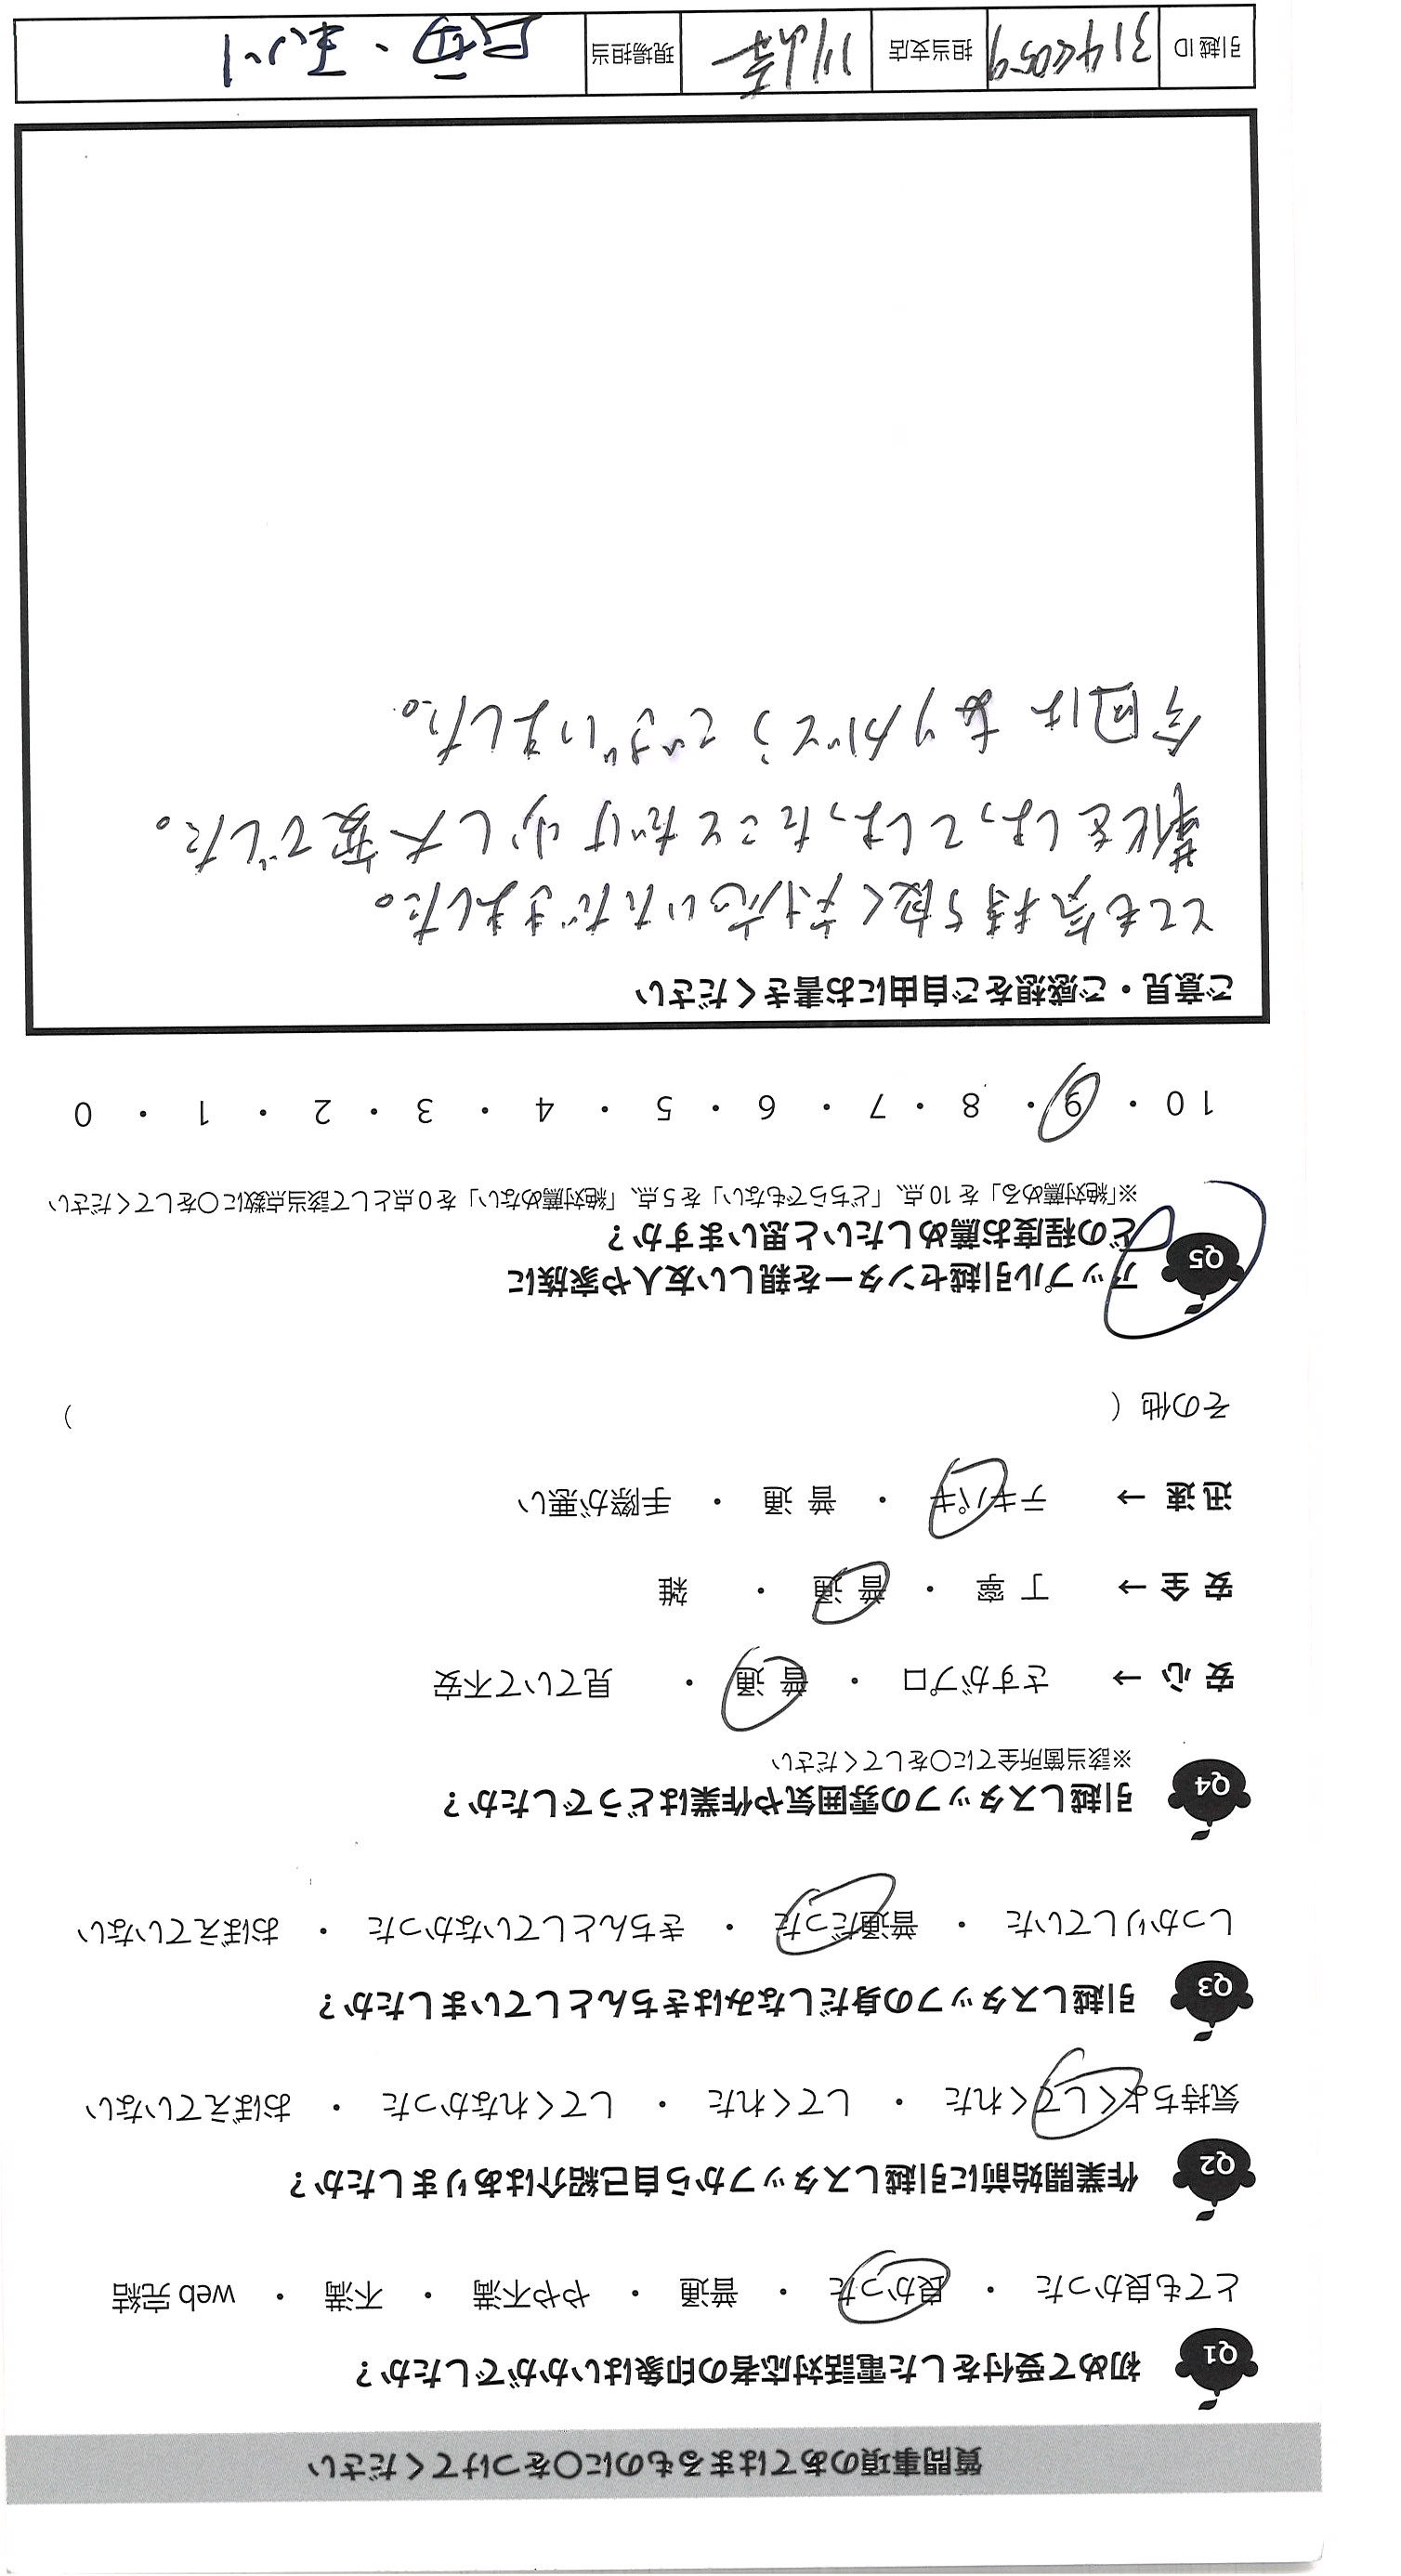 質問事項のあてはまるものに○をつけてください
Q1 初めて受付をした電話対応者の印象はいかがでしたか？
とても良かった ・ 良かった ・ 普通 ・ やや不満 ・ 不満 ・ web 完結
Q2 作業開始前に引越しスタッフから自己紹介はありましたか？
気持ちよくしてくれた ・ してくれた ・ してくれなかった ・ おぼえていない
Q3 引越しスタッフの身だしなみはきちんとしていましたか？
しっかりしていた ・ 普通だった ・ きちんとしていなかった ・ おぼえていない
Q4 引越しスタッフの雰囲気や作業はどうでしたか？
※該当箇所全てに○をしてください
安 心 → さすがプロ ・ 普 通 ・ 見ていて不安
安 全 → 丁 寧 ・ 普 通 ・ 雑
迅 速 → テキパキ ・ 普 通 ・ 手際が悪い
その他（ ）
Q5 アップル引越センターを親しい友人や家族に
どの程度お薦めしたいと思いますか？
※「絶対薦める」を 10 点、「どちらでもない」を 5 点、「絶対薦めない」を 0 点として該当点数に○をしてください
10 ・ 9 ・ 8 ・ 7 ・ 6 ・ 5 ・ 4 ・ 3 ・ 2 ・ 1 ・ 0
ご意見・ご感想をご自由にお書きください
とても気持ち良く対応いただきました。
靴をしまってしまったことだけ少し大変でした。
今回はありがとうございました。
引越 ID 3144059 担当支店 現場担当